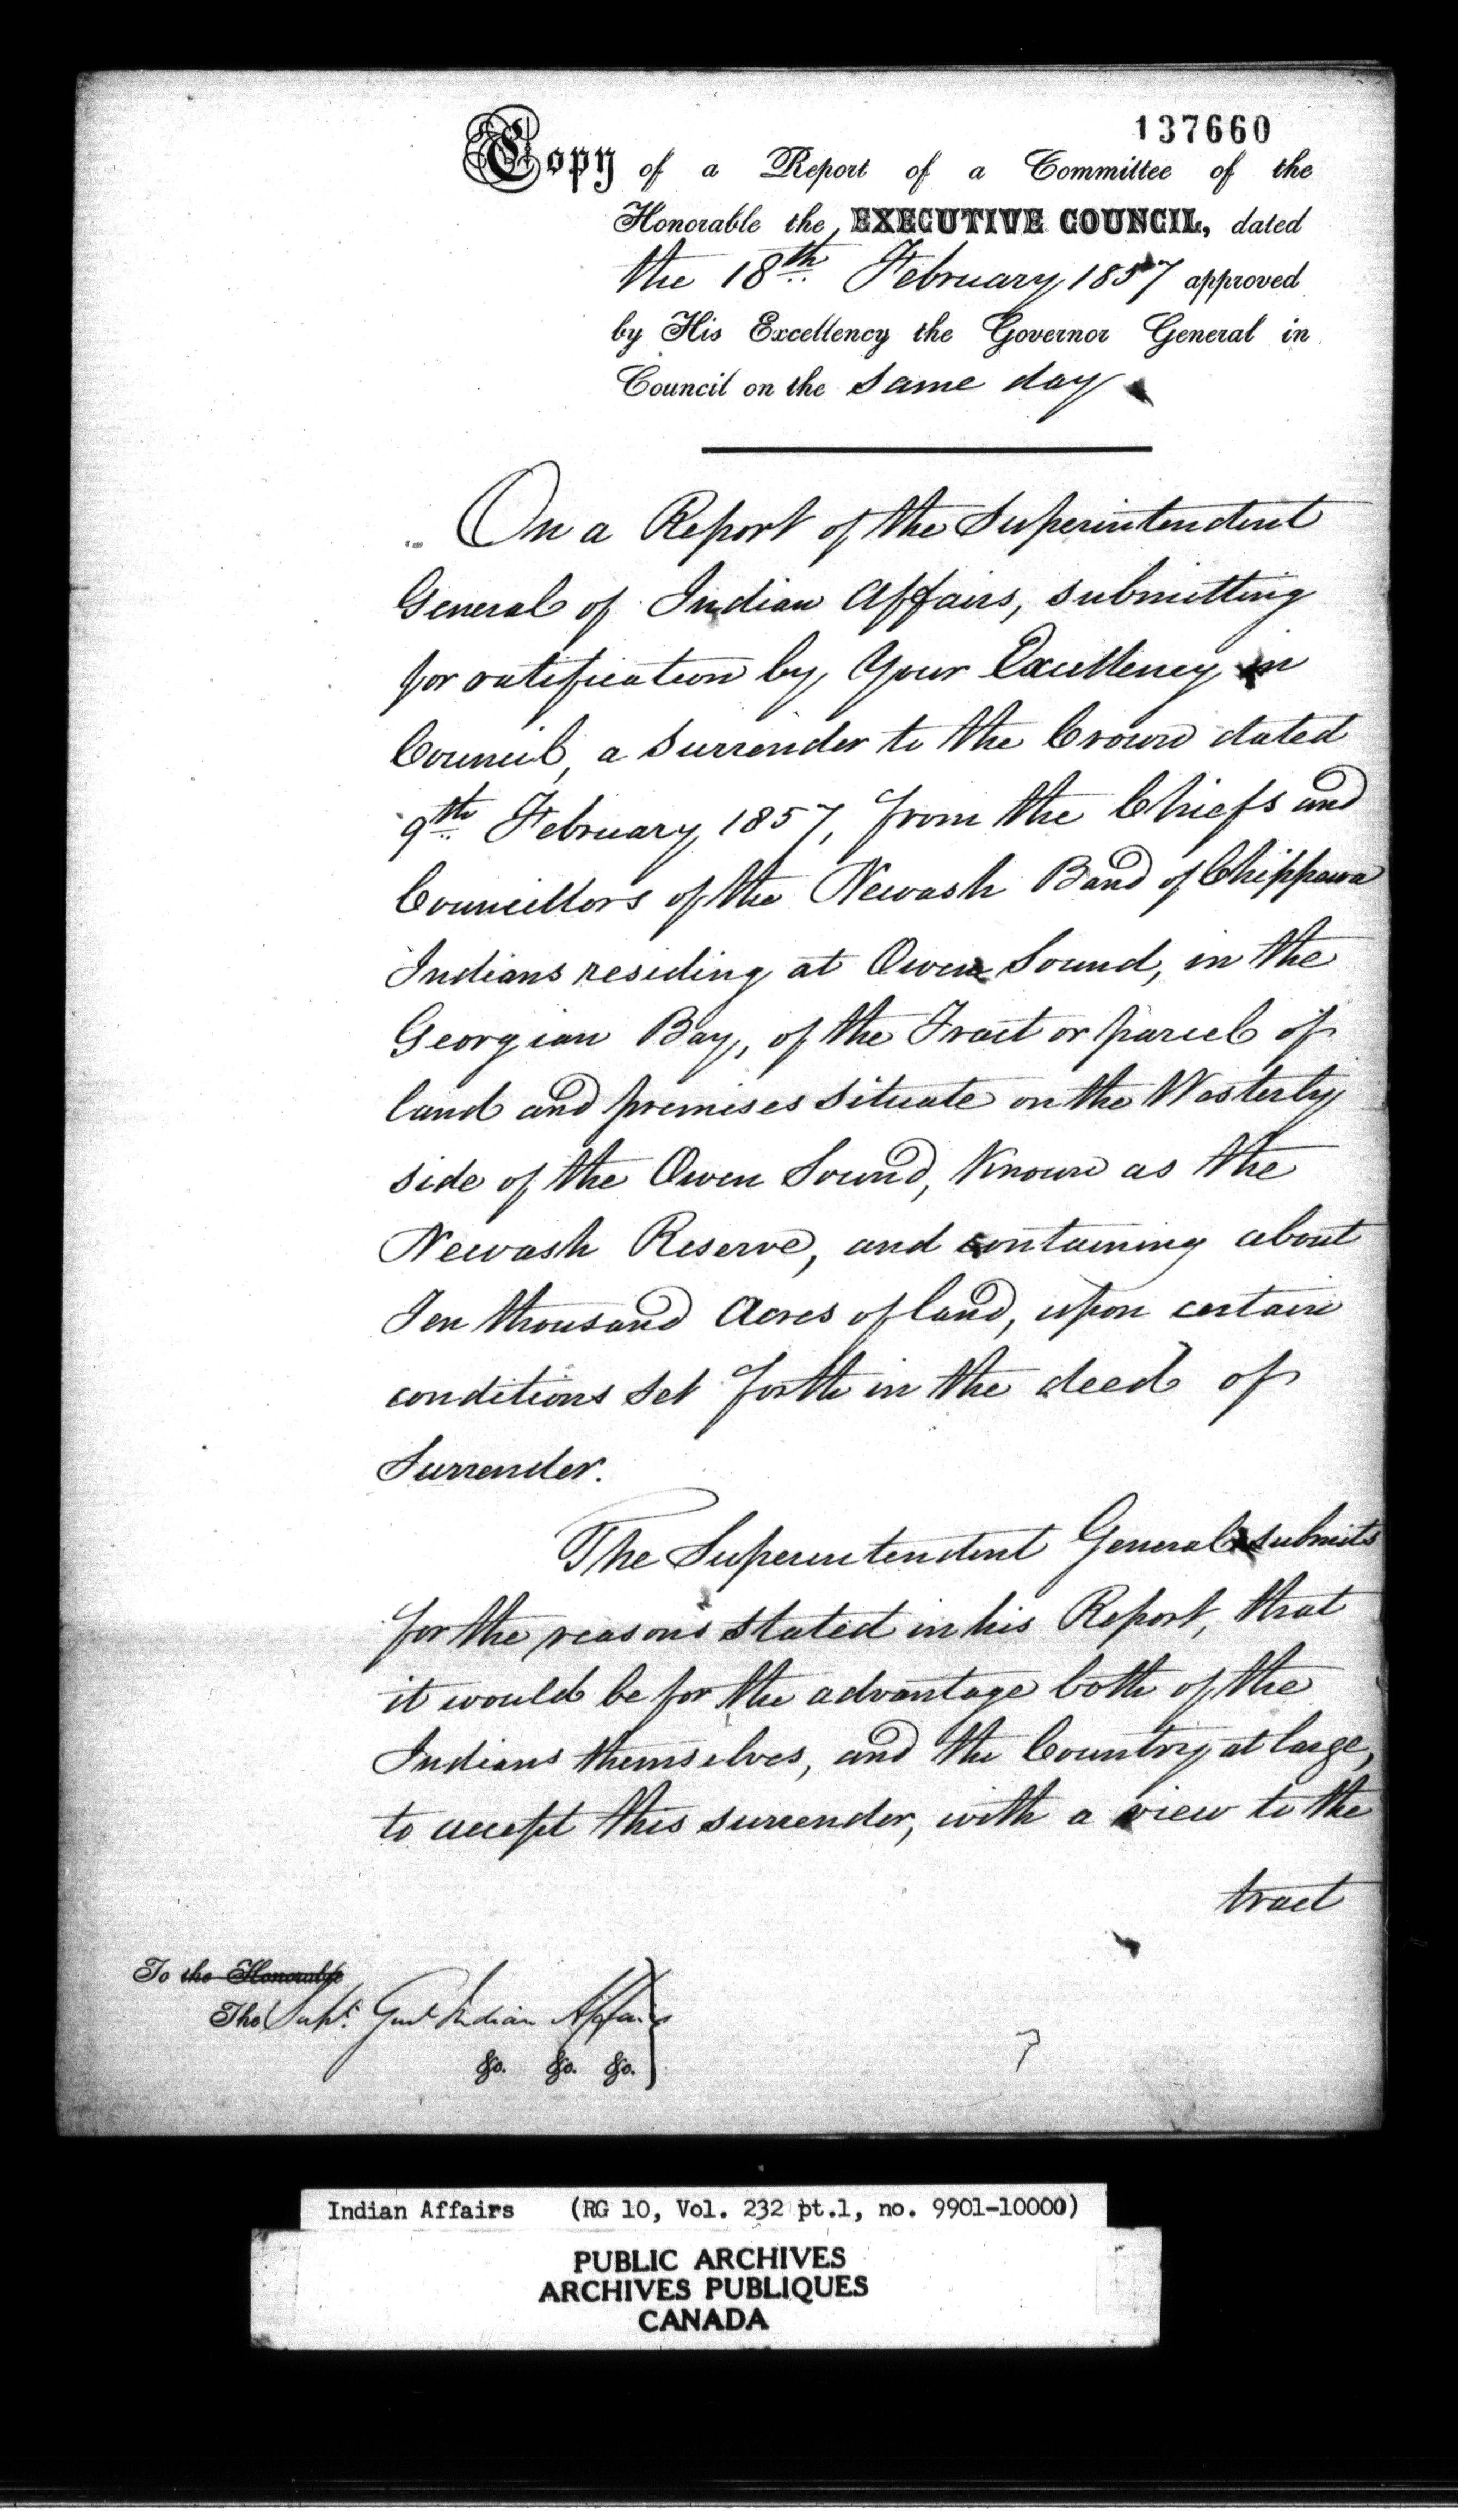 137660
Copy of a Report of a Committee of the
Honorable the EXECUTIVE COUNCIL, dated
the 18th February 1857 approved
by His Excellency the Governor General in
Council on the same day
On a Report of the Superintendent
General of Indian Affairs, submitting
for ratification by Your Excellency in
Council, a Surrender to the Crown dated
9th February 1857, from the Chiefs and
Councillors of the Newash Band of Chippawa
Indians residing at Owen Sound, in the
Georgian Bay, of the Tract or parcel of
land and premises situate on the Westerly
side of the Owen Sound, Known as the
Newash Reserve, and containing about
Ten thousand Acres of land, upon certain
conditions set forth in the deed of
Surrender.
The Superintendent General submits
for the reasons stated in his Report, that
it would be for the advantage both of the
Indians themselves, and the Country at large,
to accept this surrender, with a view to the
tract
To the Honorable
The Supt. Genl Indian Affairs
&c. &c. &c.
7
Indian Affairs (RG 10, Vol. 232 pt.1, no. 9901-10000)
PUBLIC ARCHIVES
ARCHIVES PUBLIQUES
CANADA